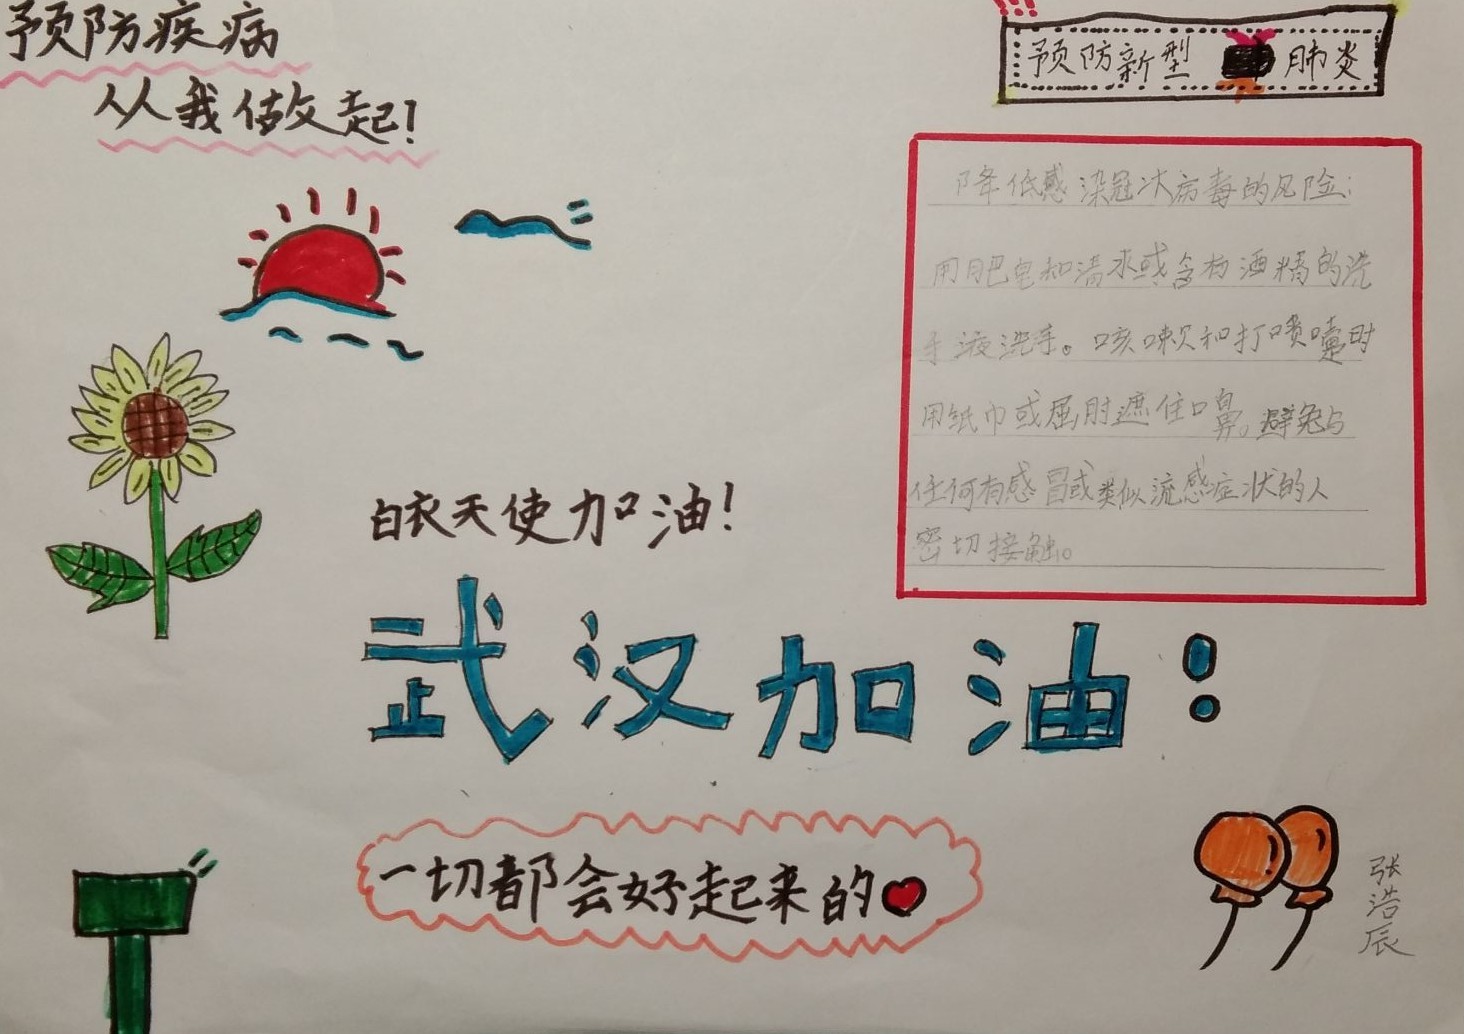 预防疾病
从我做起!
预防新型 肺炎
降低感染冠状病毒的风险:
用肥皂和清水或含有酒精的洗
手液洗手。咳嗽和打喷嚏时
用纸巾或屈肘遮住口鼻。避免与
任何有感冒或类似流感症状的人
密切接触。
白衣天使加油!
武汉加油!
一切都会好起来的
张浩辰